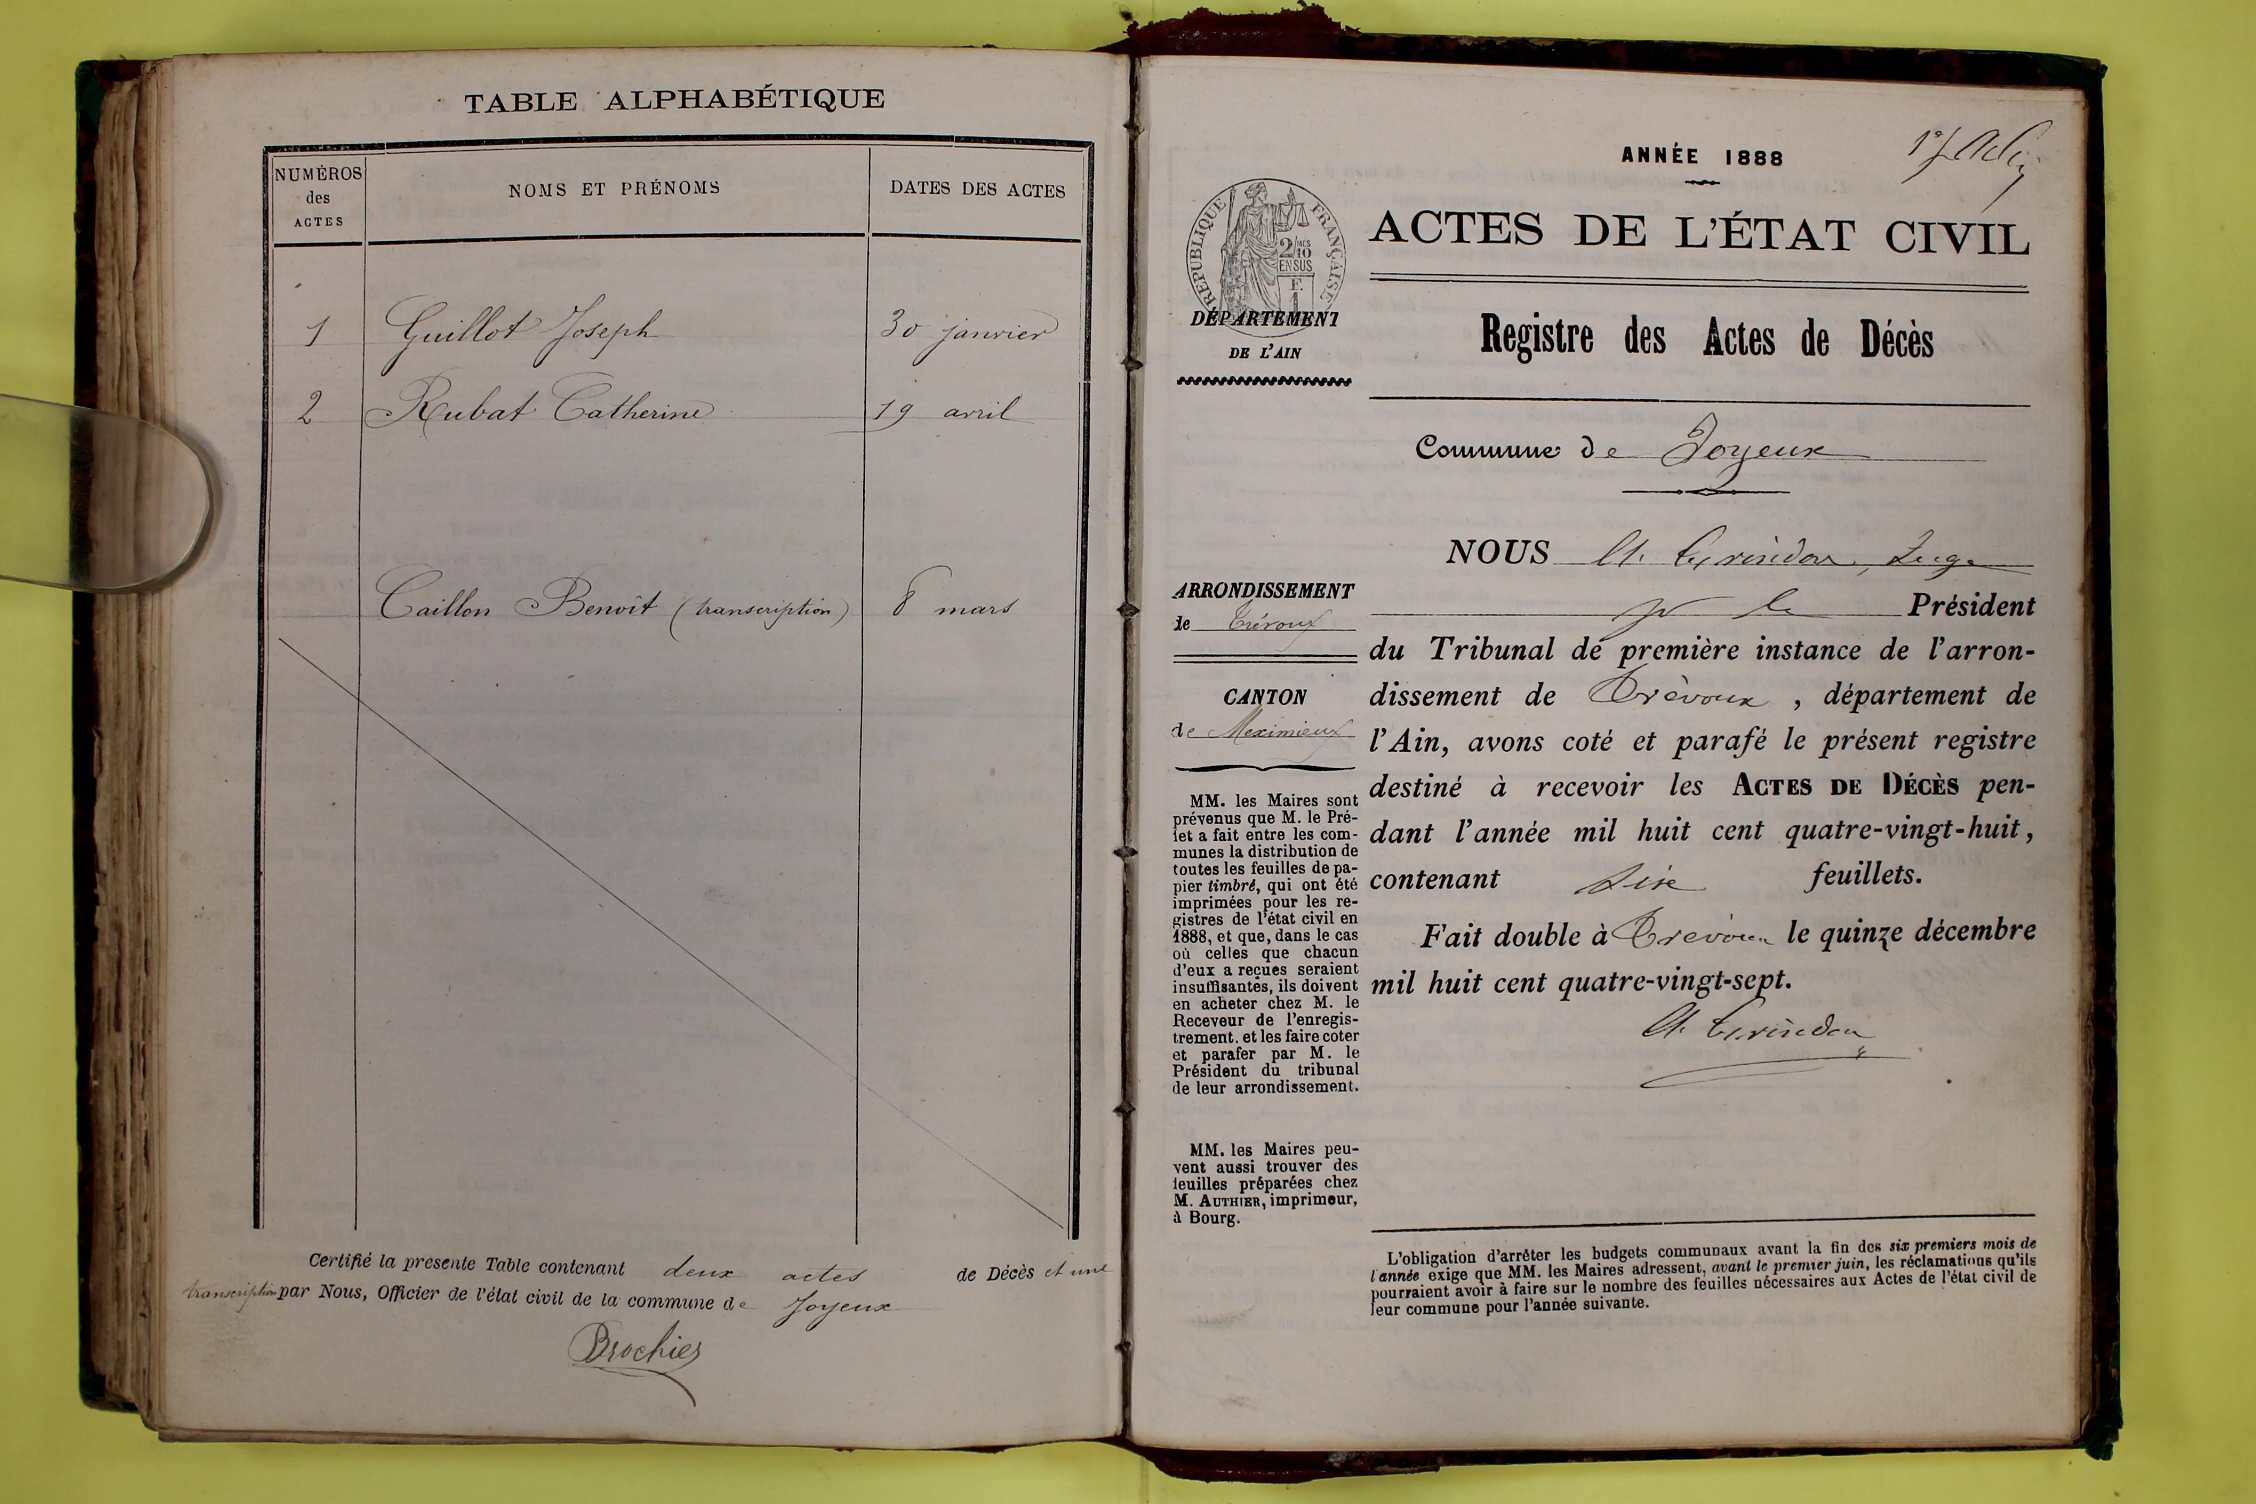 TABLE ALPHABÉTIQUE
NUMÉROS des ACTES
NOMS ET PRÉNOMS
DATES DES ACTES
1 Guillot Joseph 30 janvier
2 Rubat Catherine 19 avril
Caillon Benoît (transcription) 8 mars
Certifié la presente Table contenant deux actes de Décès et une
transcription par Nous, Officier de l'état civil de la commune de Joyeux
Brochier
ANNÉE 1888
RÉPUBLIQUE FRANÇAISE
2/10
EN SUS
ACTES DE L'ÉTAT CIVIL
DÉPARTEMENT
DE L'AIN
Registre des Actes de Décès
Commune de Joyeux
ARRONDISSEMENT
de Trévoux
CANTON
de Meximieux
MM. les Maires sont
prévenus que M. le Pré-
fet a fait entre les com-
munes la distribution de
toutes les feuilles de pa-
pier timbré, qui ont été
imprimées pour les re-
gistres de l'état civil en
1888, et que, dans le cas
où celles que chacun
d'eux a reçues seraient
insuffisantes, ils doivent
en acheter chez M. le
Receveur de l'enregis-
trement. et les faire coter
et parafer par M. le
Président du tribunal
de leur arrondissement.
MM. les Maires peu-
vent aussi trouver des
feuilles préparées chez
M. AUTHIER, imprimeur,
à Bourg.
NOUS Juge
Président
du Tribunal de première instance de l'arron-
dissement de Trévoux, département de
l'Ain, avons coté et parafé le présent registre
destiné à recevoir les ACTES DE DÉCÈS pen-
dant l'année mil huit cent quatre-vingt-huit,
contenant six feuillets.
Fait double à Trévoux le quinze décembre
mil huit cent quatre-vingt-sept.
L'obligation d'arrêter les budgets communaux avant la fin des six premiers mois de
l'année exige que MM. les Maires adressent, avant le premier juin, les réclamations qu'ils
pourraient avoir à faire sur le nombre des feuilles nécessaires aux Actes de l'état civil de
leur commune pour l'année suivante.